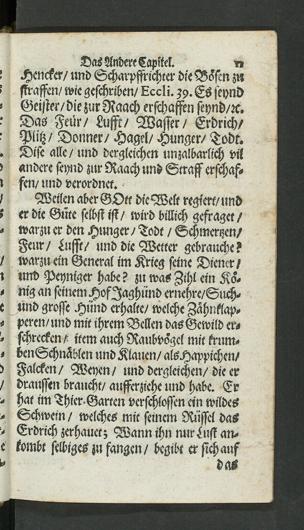 Das Andere Capitel. 11
Hencker/ und Scharpffrichter die Bösen zu
straffen/ wie geschriben/ Eccli. 39. Es seynd
Geister/ die zur Raach erschaffen seynd/ꝛc.
Das Feür/ Lufft/ Wasser/ Erdrich/
Plitz/ Donner/ Hagel/ Hunger/ Todt.
Dise alle/ und dergleichen unzalbarlich vil
andere seynd zur Raach und Straff erschaf-
fen/ und verordnet.
Weilen aber GOtt die Welt regiert/ und
er die Güte selbst ist/ wird billich gefraget/
warzu er den Hunger/ Todt/ Schmertzen/
Feur/ Lufft/ und die Wetter gebrauche?
warzu ein General im Krieg seine Diener/
und Peyniger habe? zu was Zihl ein Kö-
nig an seinem Hof Jaghünd ernehre/ Such-
und grosse Hünd erhalte/ welche Zähnklap-
peren/ und mit ihrem Bellen das Gewild er-
schrecken; item auch Raubvögel mit krum-
ben Schnäblen und Klauen/ als Happichen/
Falcken/ Weyen/ und dergleichen/ die er
draussen braucht/ aufferziehe und habe. Er
hat im Thier-Garten verschlossen ein wildes
Schwein/ welches mit seinem Rüssel das
Erdrich zerhauet; Wann ihn nur Lust an-
kombt selbiges zu fangen/ begibt er sich auf
das